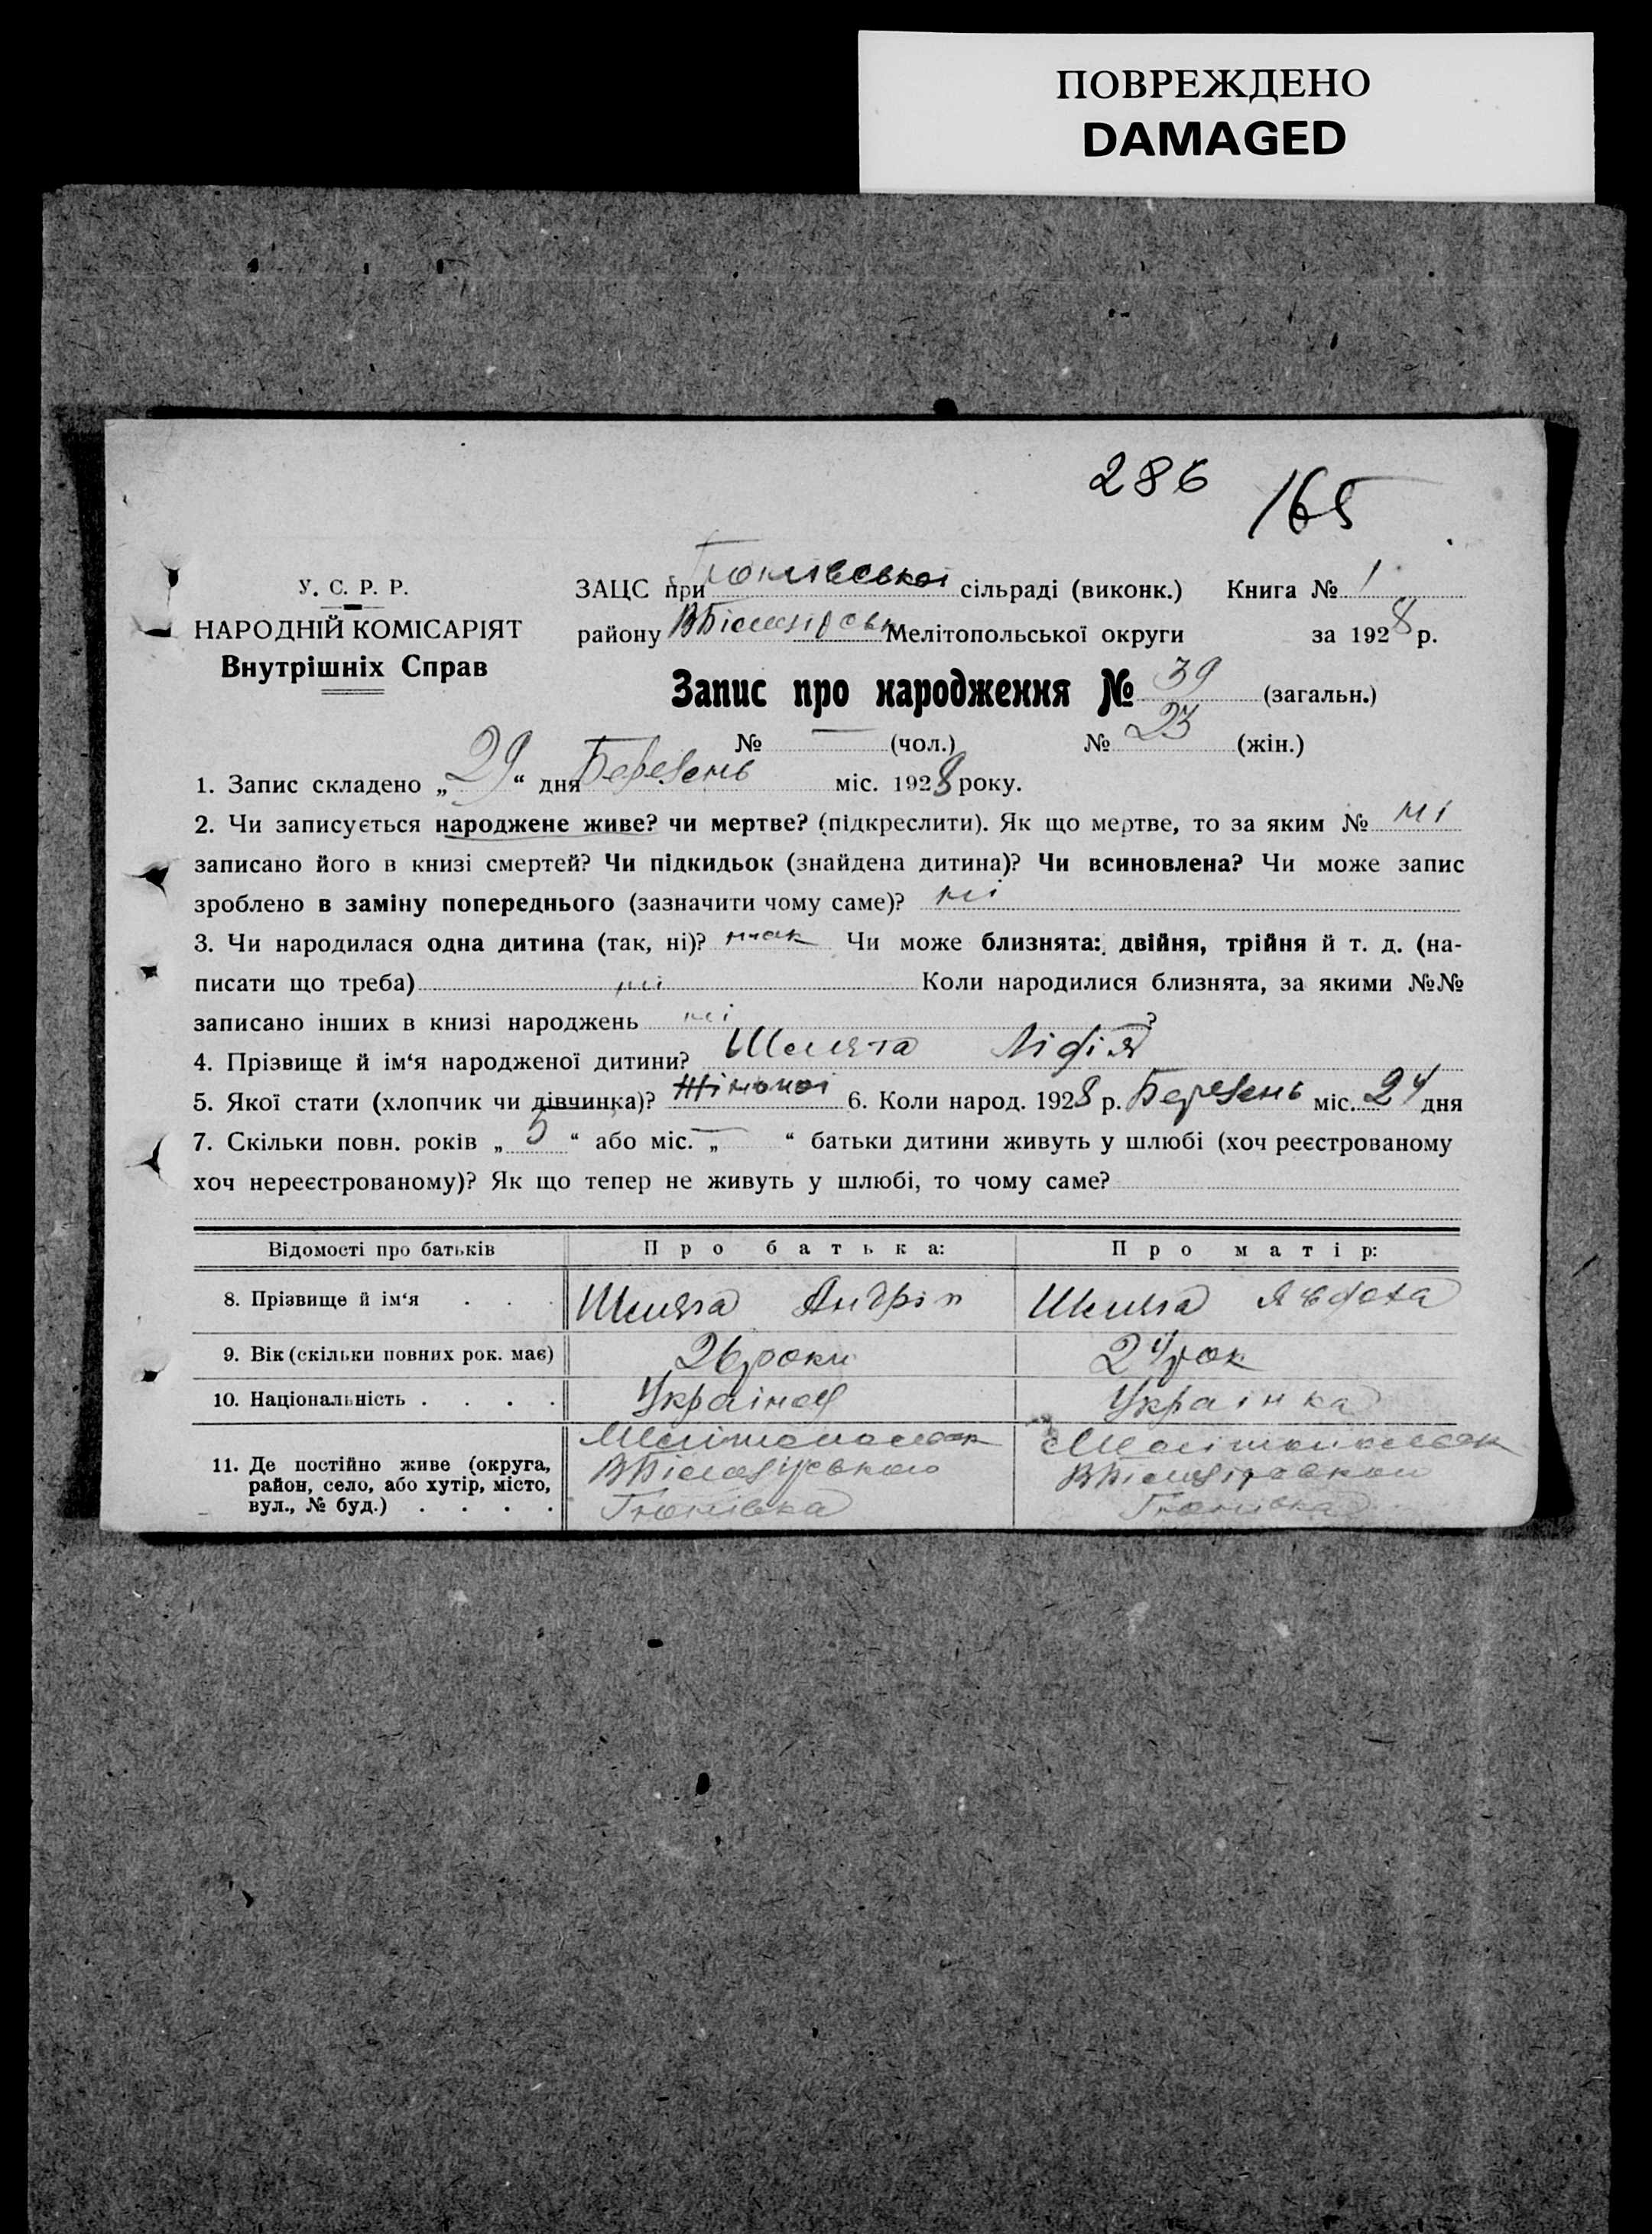 ПОВРЕЖДЕНО
DAMAGED
286
165
У. С. Р. Р.
НАРОДНІЙ КОМІСАРІЯТ
Внутрішніх Справ
ЗАЦС при Тюпівської сільраді (виконк.) Книга № 1
району Мелітопольської округи за 1928 р.
Запис про народження № 39 (загальн.)
№ — (чол.) № 23 (жін.)
1. Запис складено „29“ дня Березень міс. 1928 року.
2. Чи записується народжене живе? чи мертве? (підкреслити). Як що мертве, то за яким № ні
записано його в книзі смертей? Чи підкидьок (знайдена дитина)? Чи всиновлена? Чи може запис
зроблено в заміну попереднього (зазначити чому саме)? ні
3. Чи народилася одна дитина (так, ні)? так Чи може близнята: двійня, трійня й т. д. (на-
писати що треба) ні Коли народилися близнята, за якими №№
записано інших в книзі народжень ні ?
4. Прізвище й ім‘я народженої дитини? Лідія
5. Якої стати (хлопчик чи дівчинка)? Жіночої 6. Коли народ. 1928 р. Березень міс. 24 дня
7. Скільки повн. років „5“ або міс. „—“ батьки дитини живуть у шлюбі (хоч реєстрованому
хоч нереєстрованому)? Як що тепер не живуть у шлюбі, то чому саме?
Відомості про батьків Про батька: Про матір:
8. Прізвище й ім‘я . . . Андрій Явдоха
9. Вік (скільки повних рок. має) 26 роки 24 рок
10. Національність . . . . Українец Українка
11. Де постійно живе (округа,
район, село, або хутір, місто,
вул., № буд.) . . . . Тюпівка Тюпівка